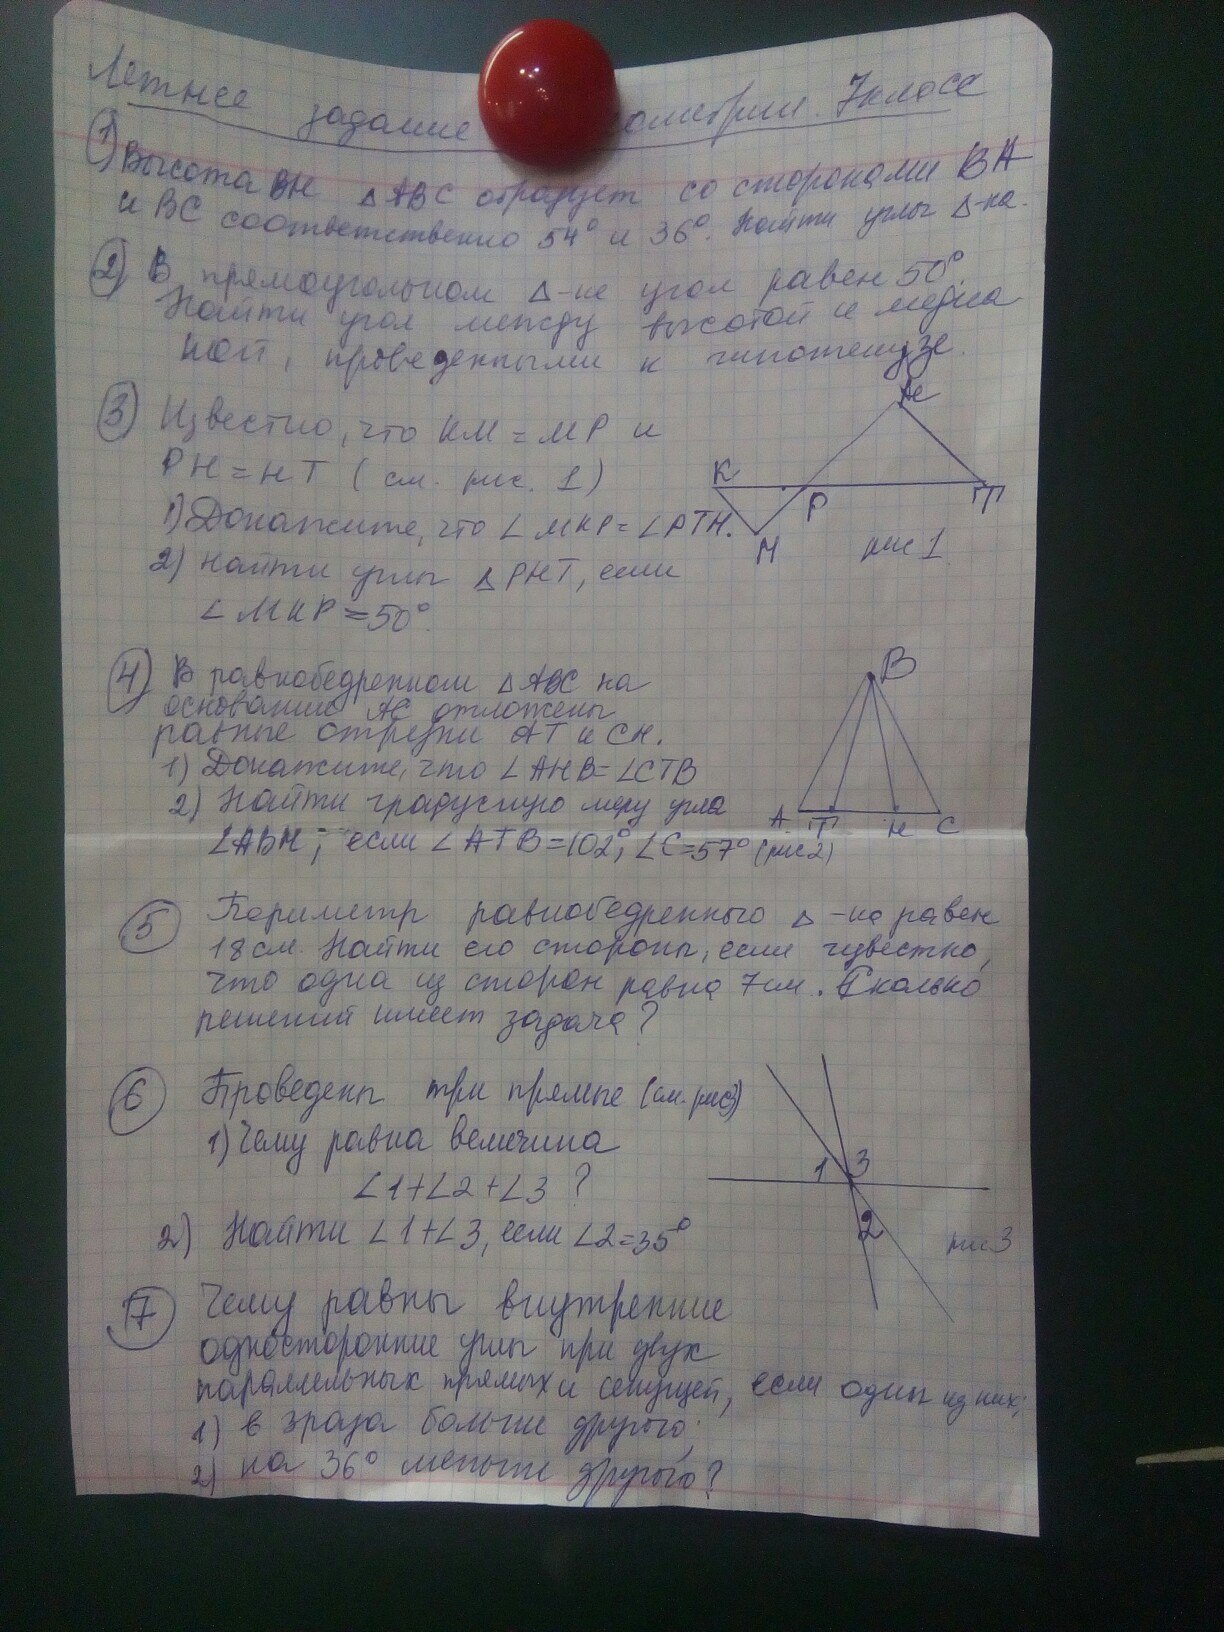 Летнее задание ометрии. 7класс
1) Высота BH △ABC образует со сторонами BA
и BC соответственно 54° и 36°. Найти углы △-ка.
2) В прямоугольном △-ке угол равен 50°.
Найти угол между высотой и медиа
ной, проведенными к гипотенузе.
3) Известно, что KM = MP и
PH = HT (см. рис. 1)
1) Докажите, что ∠MKP = ∠PTH.
2) Найти углы △PHT, если
∠MKP = 50°.
K P T M H
рис 1
4) В равнобедренном △ABC на
основании AC отложены
равные отрезки AT и CH.
1) Докажите, что ∠AHB = ∠CTB
2) Найти градусную меру угла
∠ABH, если ∠ATB = 102°, ∠C = 57° (рис 2)
B
A T H C
5) Периметр равнобедренного △-ка равен
18 см. Найти его стороны, если известно,
что одна из сторон равна 7 см. Сколько
решений имеет задача?
6) Проведены три прямые (см. рис3)
1) Чему равна величина
∠1+∠2+∠3 ?
2) Найти ∠1+∠3, если ∠2=35°
1 3
2
рис 3
7) Чему равны внутренние
односторонние углы при двух
параллельных прямых и секущей, если один из них:
1) в 3 раза больше другого;
2) на 36° меньше другого?